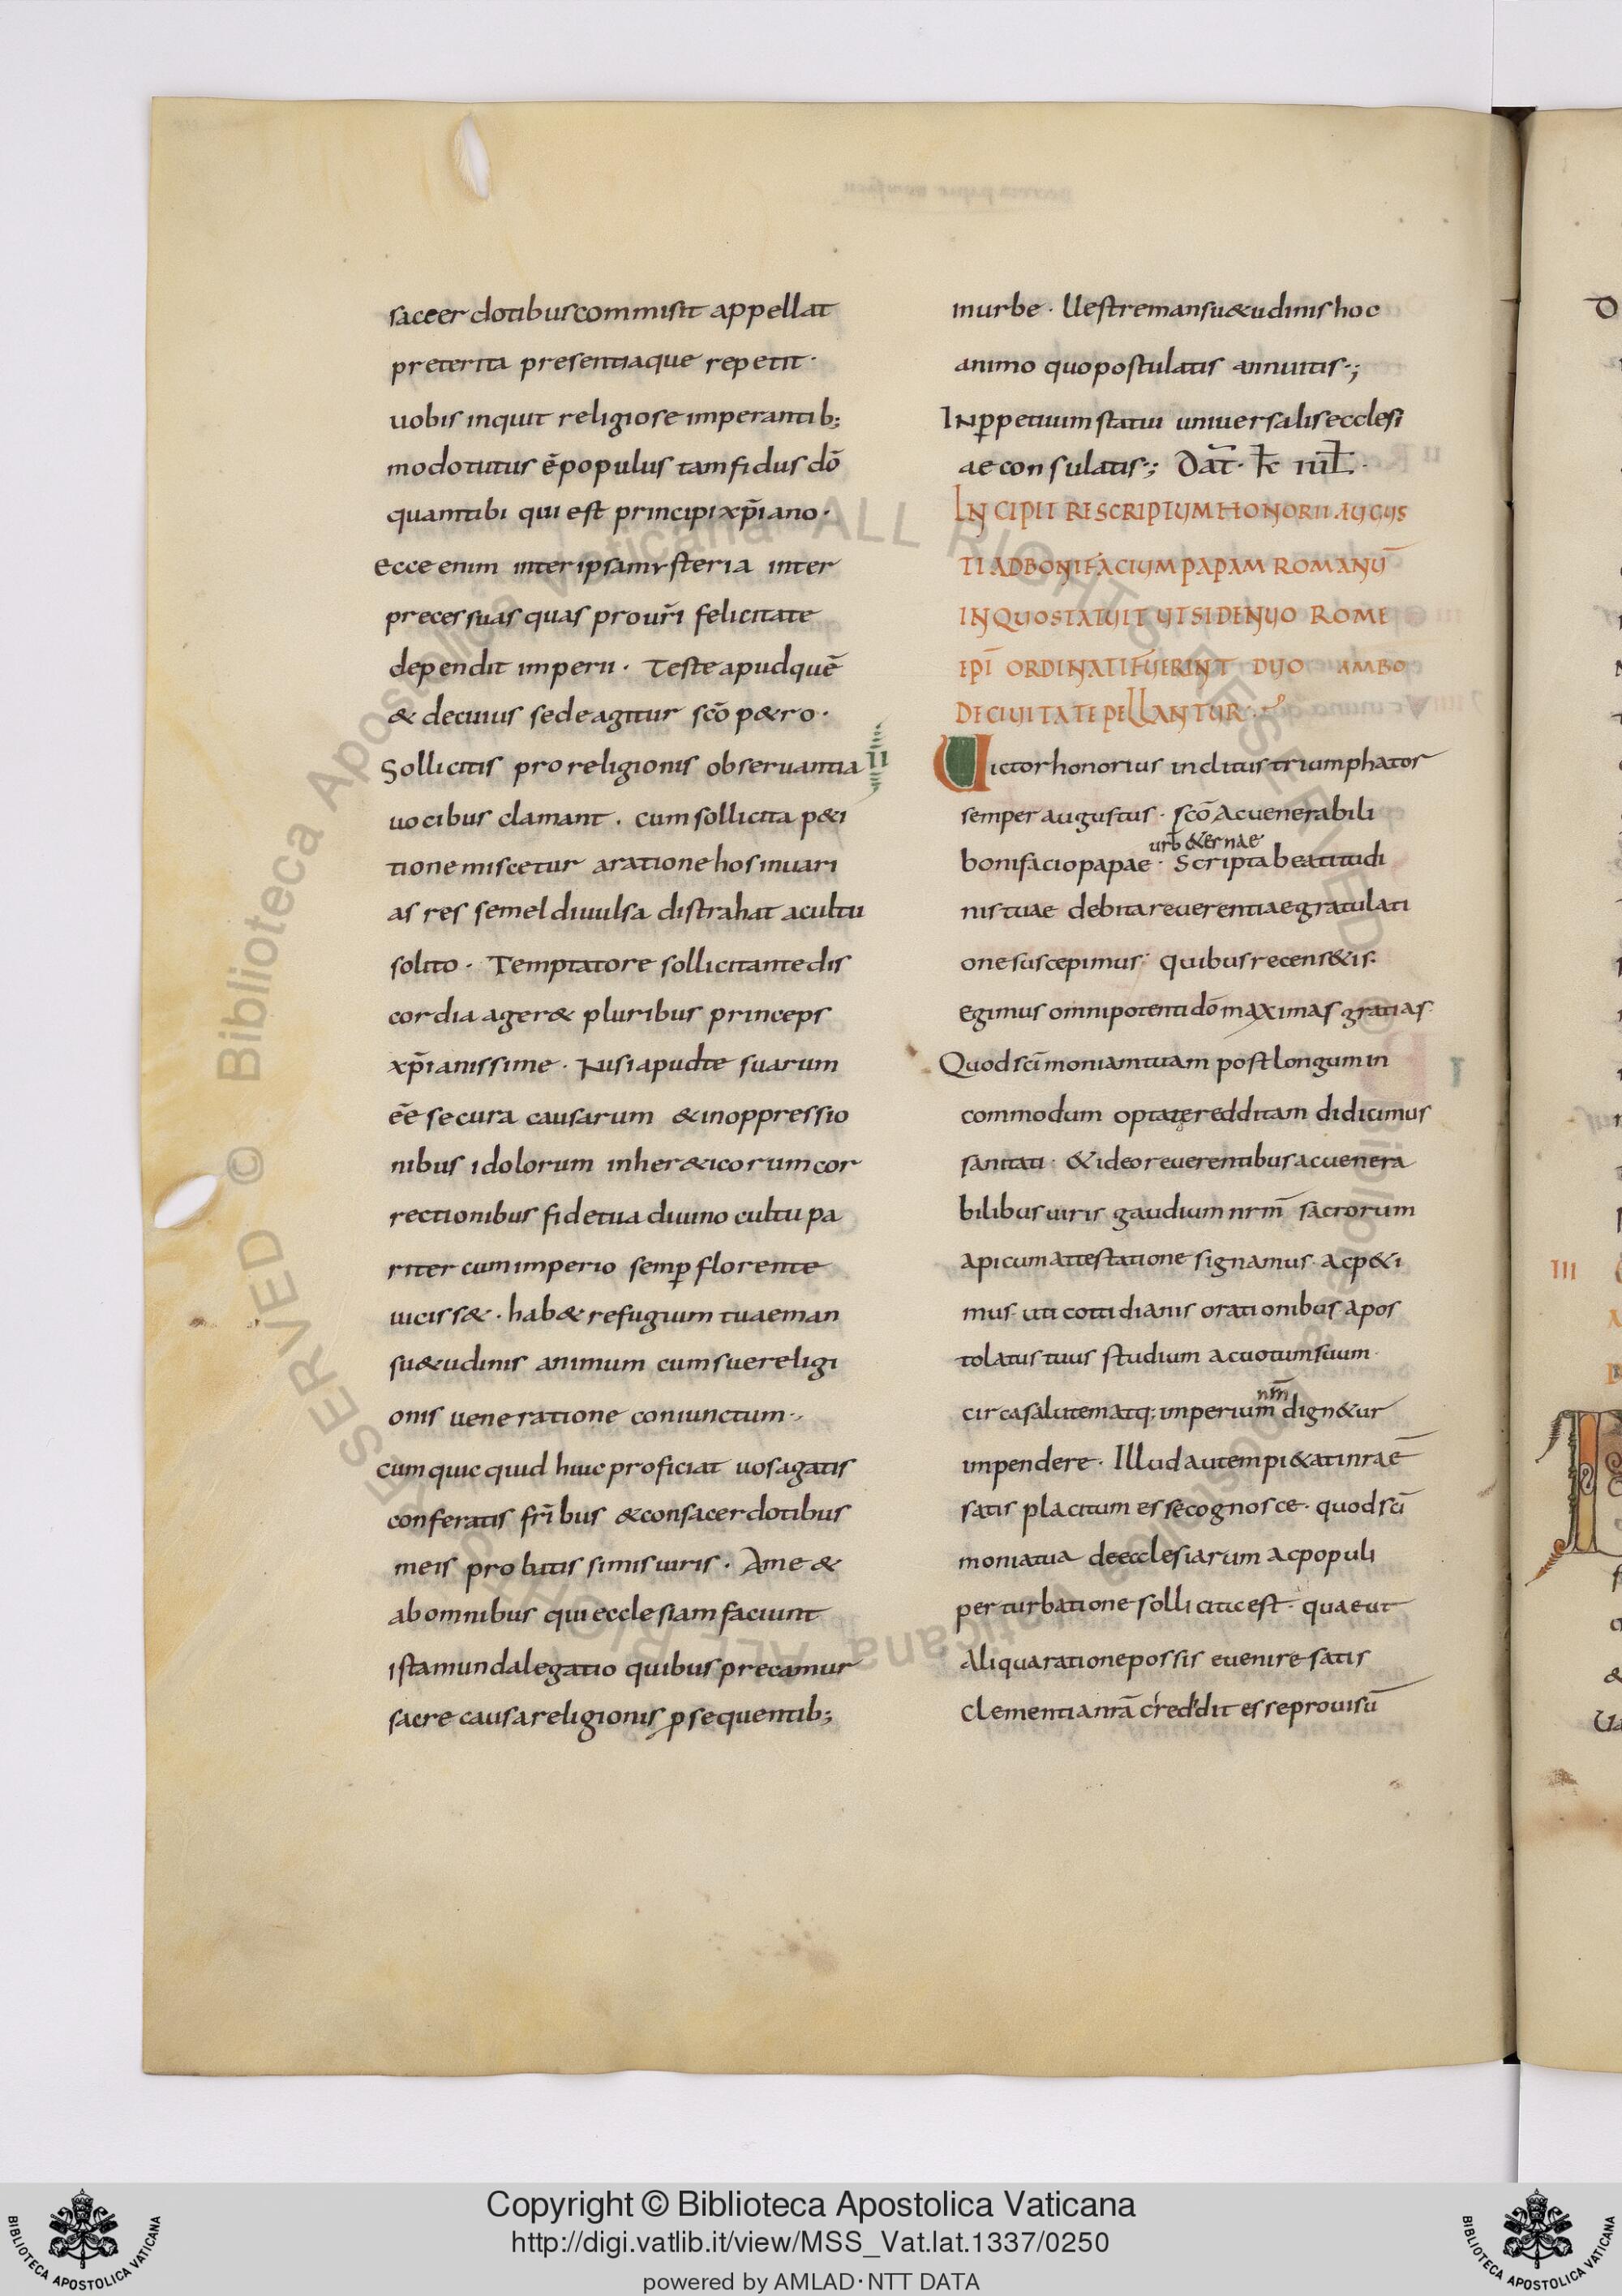 saceerdotibus commisit appellat
preterita presentiaque repetit·
uobis inquit religiose imperantib;
modo tutus ē populus tam fidus dō
quam tibi qui est principi xp̄iano·
Ecce enim inter ipsa mysteria inter
preces suas quas pro ur̄i felicitate
dependit imperii· Teste apud quē
& de cuius sede agitur scō p&ro·
Sollicitis pro religionis obseruantia
uocibus clamant. cum sollicita p&i
tione miscetur a ratione hos inuari
as res semel diuulsa distrahat a cultu
solito· Temptatore sollicitante dis
cordia ager& pluribus princeps
xp̄ianissime· Nisi apud te suarum
eē secura causarum & in oppressio
nibus idolorum in her&icorum cor
rectionibus fide tua diuino cultu pa
riter cum imperio semp̱ florente
uiciss&· hab& refugium tuae man
su&udinis animum cum sue religi
onis ueneratione coniunctum·,
cum quic quid huic proficiat uos agatis
conferatis fr̄ibus & consacerdotibus
meis probatis simis uiris· A me &
ab omnibus qui ecclesiam faciunt
istam unda legatio quibus precamur
sacre causa religionis p̱sequentib;
in urbe· Uestre mansu&udinis hoc
animo quo postulatis annuitis·;
In p̱petuum statui uniuersalis ecclesi
ae consulatis·; Dat̄· k̄ iul̄·
INCIPIT RESCRIPTUM HONORII AUGUS
TI AD BONIFACIUM PAPAM ROMANŪ
IN QUO STATUIT UT SI DENUO ROME
EPĪ ORDINATI FUERINT DUO AMBO
DE CIUITATE PELLANTUR·
II
Uictor honorius inclitus triumphator
semper augustus· scō Ac uenerabili
urb̄ &ernae
bonifacio papae· Scripta beatitudi
nis tuae debita reuerentiae gratulati
one suscepimus· quibus recens&is·
egimus omnipotenti dō maximas gratias·
Quod scī moniam tuam post longum in
commodum optatę redditam didicimus
sanitati· & ideo reuerentibus ac uenera
bilibus uiris gaudium nrm̄ sacrorum
apicum attestatione signamus· ac p&i
mus· uti cottidianis orationibus apos
tolatus tuus studium ac uotum suum·
nrm̄
circa salutem atq; imperium dign&ur
impendere· Illud autem pi&ati nrae̅
satis placitum esse cognosce· quod scī
monia tua de ecclesiarum ac populi
perturbatione sollicitic est· quae ut
Aliqua ratione possis euenire satis
Clementia nrā creddit esse prouisū
Copyright © Biblioteca Apostolica Vaticana
http://digi.vatlib.it/view/MSS_Vat.lat.1337/0250
powered by AMLAD·NTT DATA